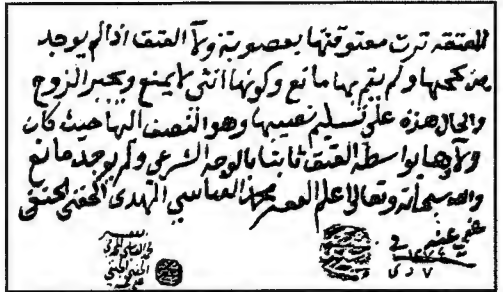 المعتقة ترث معتوقتها بعصوبة ولاء العتق اذا لم يوجد
من يحجبها ولم يقم بها مانع وكونها انثى لا يمنع ويجبر الزوج
والحال هذه على تسليم نصيبها وهو النصف اليها حيث كان
ولاؤها بواسطة العتق ثابتا بالوجه الشرعى ولم يوجد مانع
والله سبحانه وتعالى اعلم محمد العباسي المهدى الحفنى الحنفى
عفى عنه